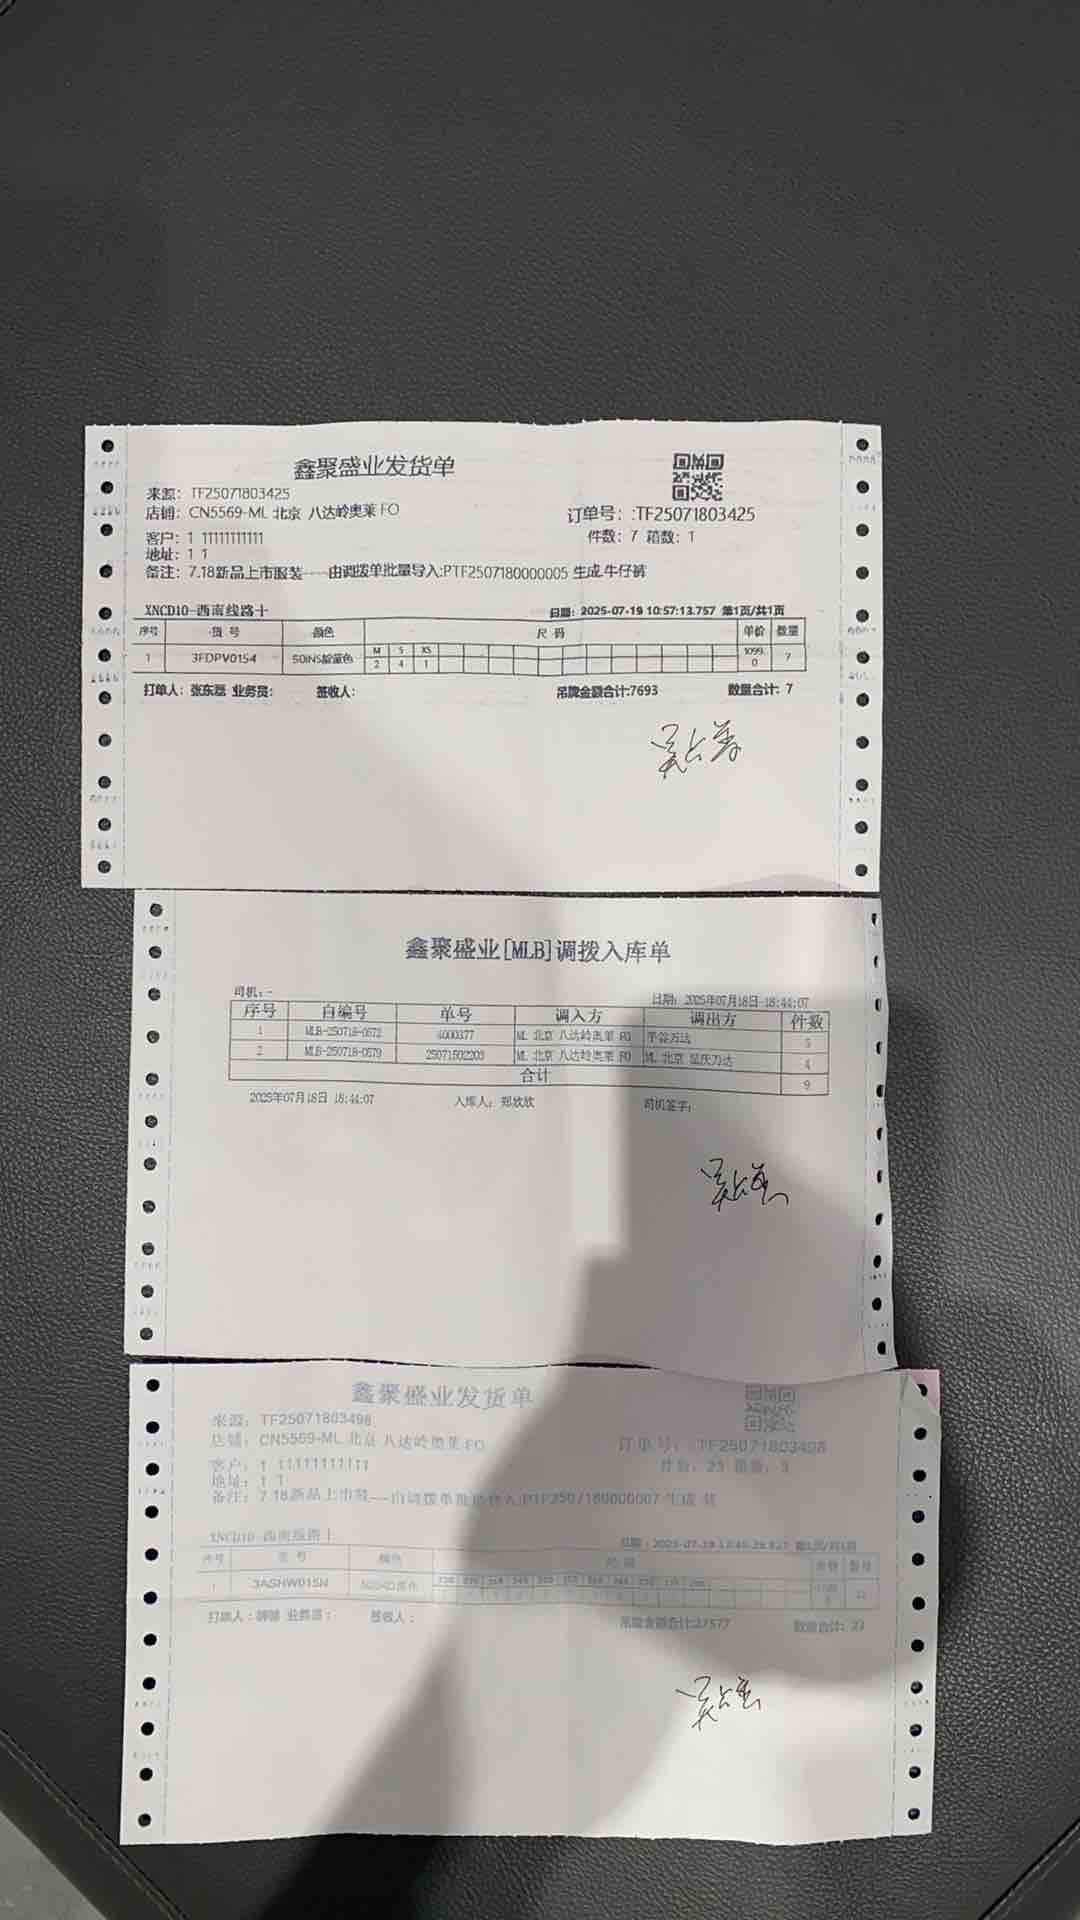 鑫聚盛业发货单
来源：TF25071803425
店铺：CN5569-ML 北京 八达岭奥莱 FO
订单号：:TF25071803425
客户：1 11111111111
件数：7 箱数：1
地址：1 1
备注：7.18新品上市服装----由调拨单批量导入:PTF2507180000005 生成,牛仔裤
XNCD10-西南线路十
日期：2025-07-19 10:57:13.757 第1页/共1页
序号 货号 颜色 尺码 单价 数量
M S XS
1 3FDPV0154 50INS靛蓝色 2 4 1 1099.0 7
打单人：张东磊 业务员： 签收人： 吊牌金额合计:7693 数量合计：7
鑫聚盛业[MLB]调拨入库单
司机：-
日期：2025年07月18日 18:44:07
序号 自编号 单号 调入方 调出方 件数
1 MLB-250718-0572 4000377 ML 北京 八达岭奥莱 FO 平谷万达 5
2 MLB-250718-0579 25071502203 ML 北京 八达岭奥莱 FO ML 北京 延庆万达 4
合计 9
2025年07月18日 18:44:07 入库人：郑欣欣 司机签字：
鑫聚盛业发货单
来源：TF25071803498
店铺：CN5569-ML 北京 八达岭奥莱 FO
订单号：:TF25071803498
客户：1 11111111111
件数：23 箱数：3
地址：1 1
备注：7.18新品上市鞋----由调拨单批量导入:PTF2507180000007 生成
XNCD10-西南线路十
序号 货号 颜色 尺码 单价 数量
1 3ASHW015N
打单人： 业务员： 签收人： 吊牌金额合计:27577 数量合计：23